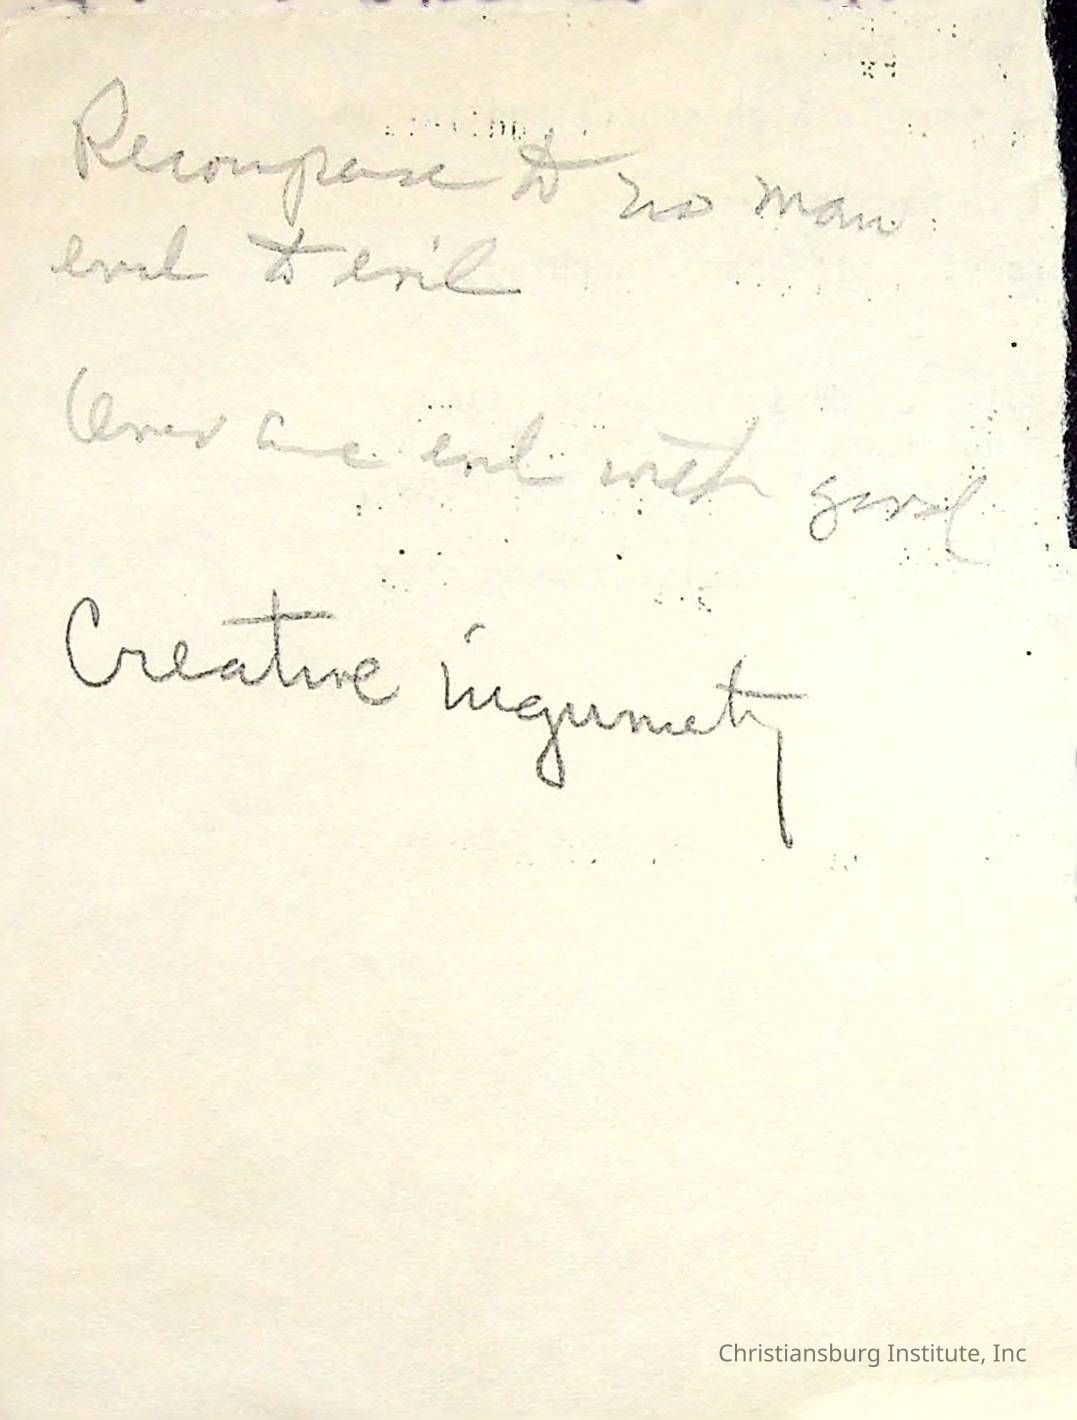 Recompense to no man
evil to evil
Over come evil with good
Creative ingunuety
Christiansburg Institute, Inc